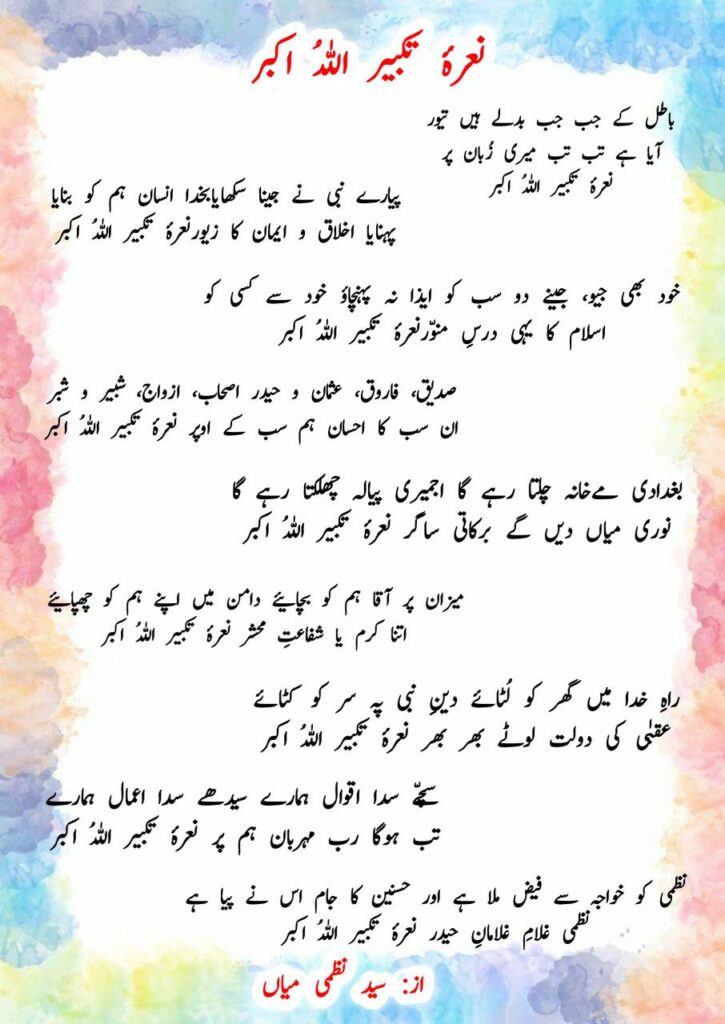 نعرۂ تکبیر اللہُ اکبر
باطل کے جب جب بدلے ہیں تیور
آیا ہے تب تب میری زُبان پر
نعرۂ تکبیر اللہُ اکبر
پیارے نبی نے جینا سکھایابخدا انسان ہم کو بنایا
پہنایا اخلاق و ایمان کا زیورنعرۂ تکبیر اللہُ اکبر
خود بھی جیو، جینے دو سب کو ایذا نہ پہنچاؤ خود سے کسی کو
اسلام کا یہی درسِ منوّرنعرۂ تکبیر اللہُ اکبر
صدیق، فاروق، عثمان و حیدر اصحاب، ازواج، شبیر و شبر
ان سب کا احسان ہم سب کے اوپر نعرۂ تکبیر اللہُ اکبر
بغدادی مےخانہ چلتا رہے گا اجمیری پیالہ چھلکتا رہے گا
نوری میاں دیں گے برکاتی ساگر نعرۂ تکبیر اللہُ اکبر
میزان پر آقا ہم کو بچایٔے دامن میں اپنے ہم کو چھپایٔے
اتنا کرم یا شفاعتِ محشر نعرۂ تکبیر اللہُ اکبر
راہِ خدا میں گھر کو لُٹائے دینِ نبی پہ سر کو کٹائے
عقبٰی کی دولت لوٹے بھر بھر نعرۂ تکبیر اللہُ اکبر
سچّے سدا اقوال ہمارے سیدھے سدا اعمال ہمارے
تب ہوگا رب مہربان ہم پر نعرۂ تکبیر اللہُ اکبر
نظمی کو خواجہ سے فیض ملا ہے اور حسنین کا جام اس نے پیا ہے
نظمی غلامِ غلامانِ حیدر نعرۂ تکبیر اللہُ اکبر
از: سید نظمی میاں